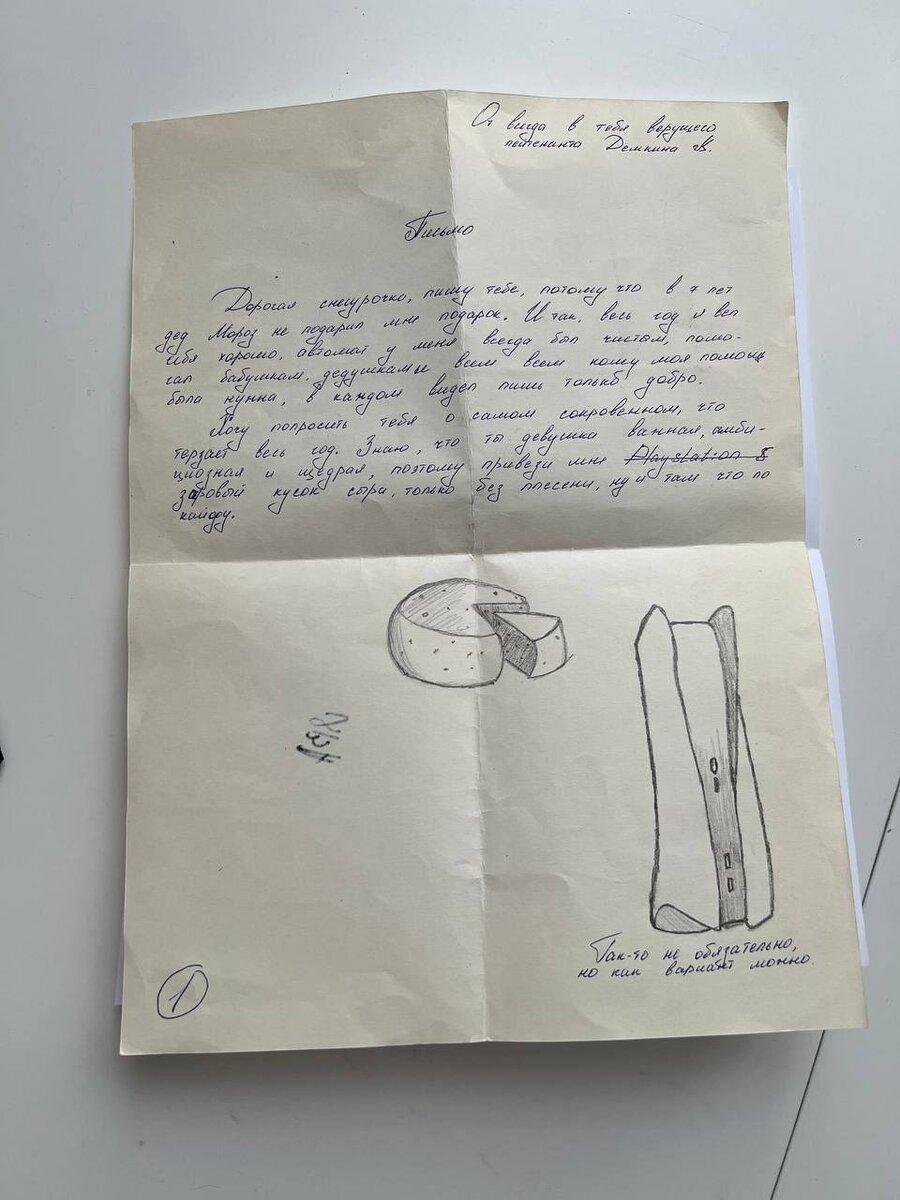 От всегда в тебя верущего
лейтенанта Демкина К.
Письмо
Дорогая снегурочка, пишу тебе, потому что в 7 лет
дед Мороз не подарил мне подарок. И так, весь год я вел
себя хорошо, автомат у меня всегда был чистым, помо-
гал бабушкам, дедушкам и всем всем кому моя помощь
была нужна, в каждом видел лишь только добро.
Хочу попросить тебя о самом сокровенном, что
терзает весь год. Знаю, что ты девушка важная, амби-
циозная и щедрая, поэтому привези мне Playstation 5
здоровый кусок сыра, только без плесени, ну и там что по
кайфу.
Так-то не обязательно,
но как вариант можно.
1